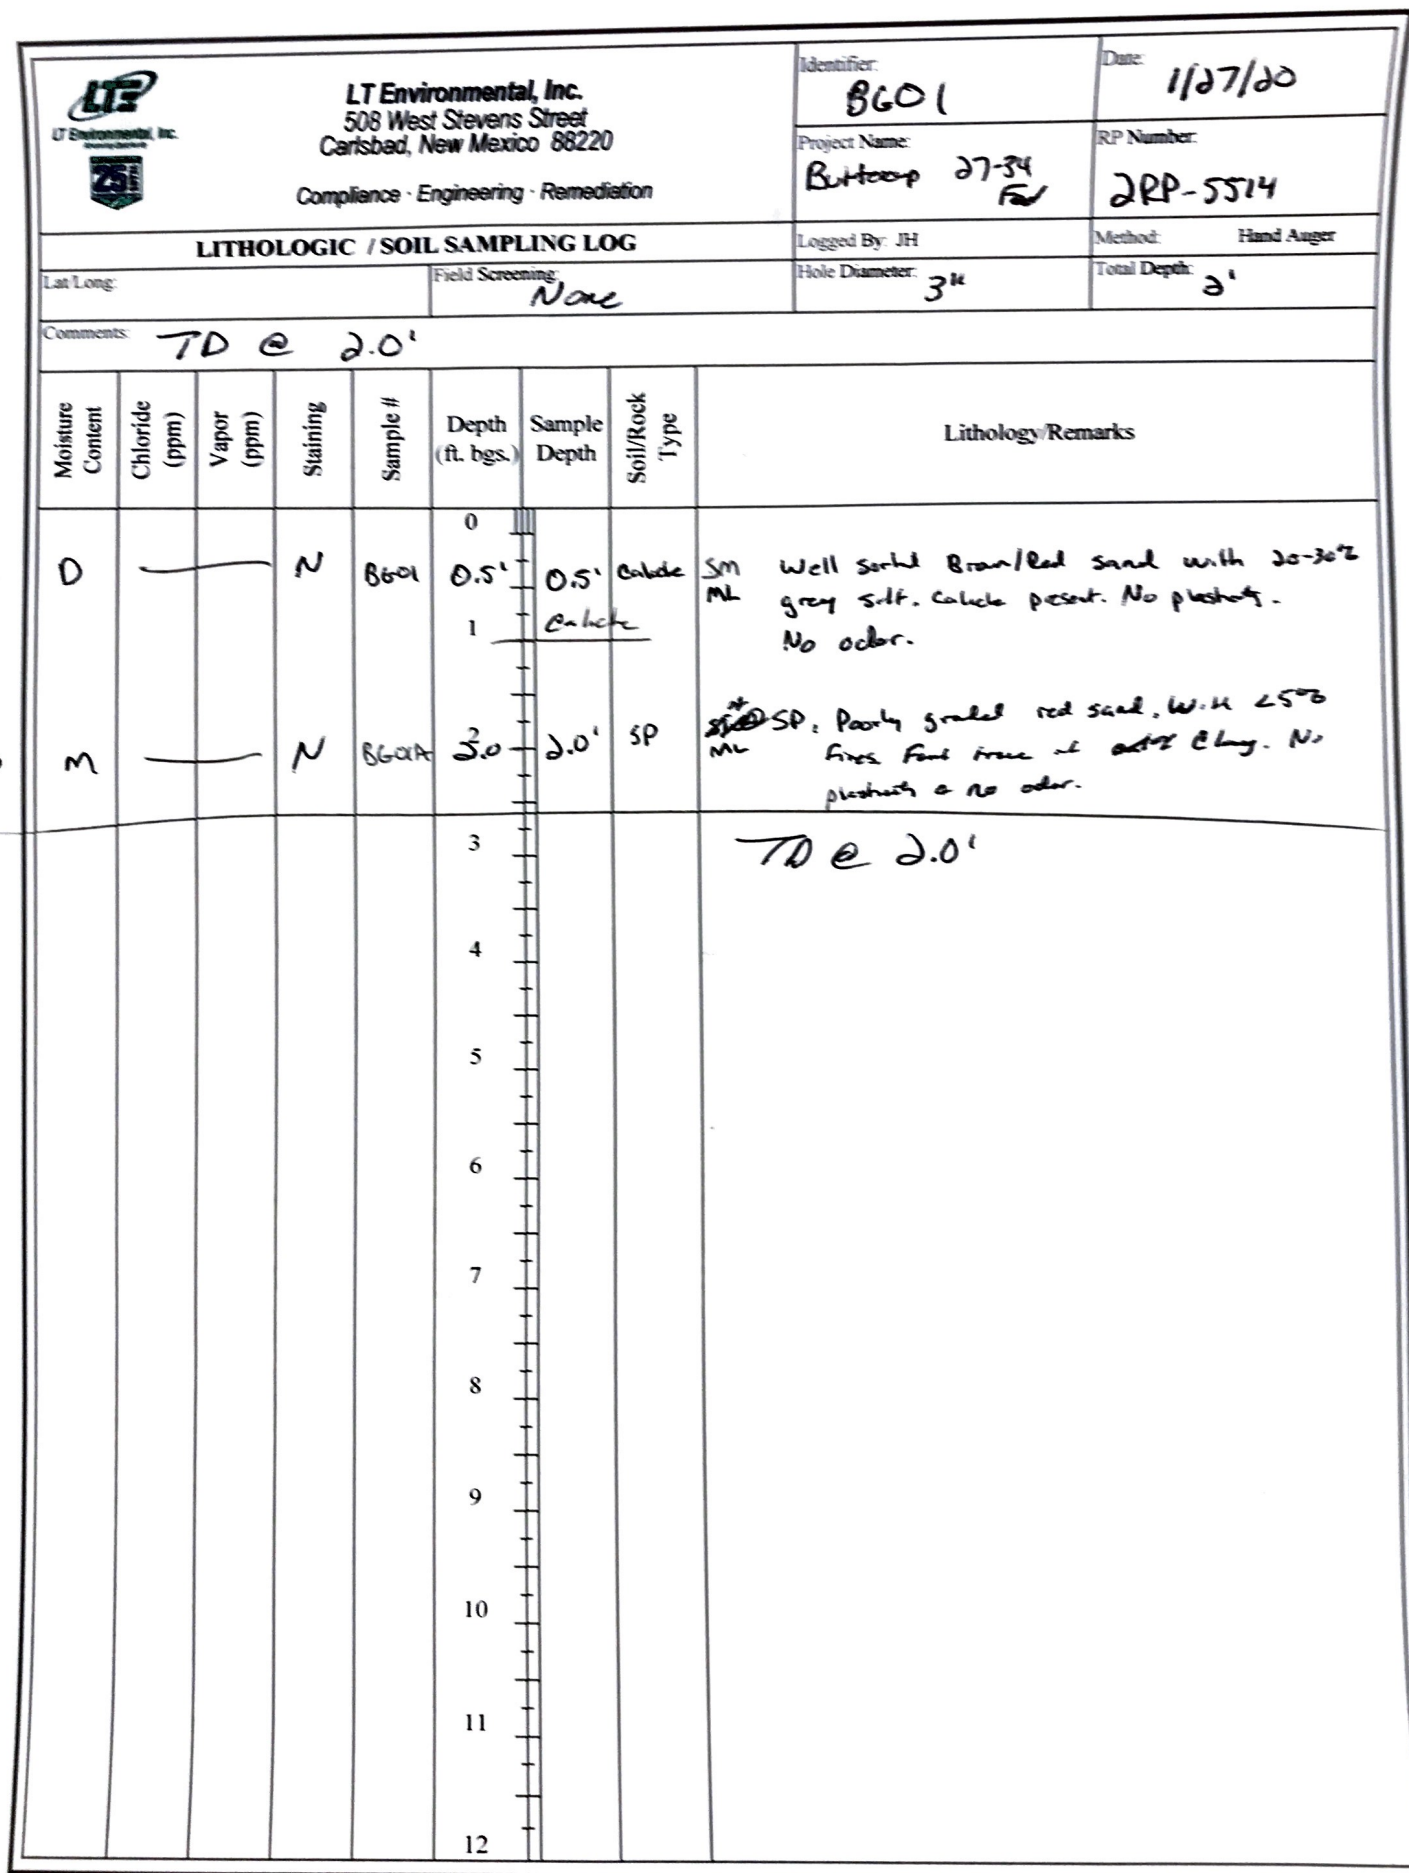 LTE
LT Environmental, Inc.
25
LT Environmental, Inc.
508 West Stevens Street
Carlsbad, New Mexico 88220
Compliance · Engineering · Remediation
Identifier:
BG01
Date:
1/27/20
Project Name:
Buttercup 27-34
Fed
RP Number:
2RP-5514
LITHOLOGIC / SOIL SAMPLING LOG
Logged By: JH
Method: Hand Auger
Lat/Long:
Field Screening:
None
Hole Diameter: 3"
Total Depth: 2'
Comments: TD @ 2.0'
Moisture Content
Chloride (ppm)
Vapor (ppm)
Staining
Sample #
Depth (ft. bgs.)
Sample Depth
Soil/Rock Type
Lithology/Remarks
0
D N BG01 0.5' 0.5' Caliche SM Well sorted Brown/Red sand with 20-30%
ML grey silt. Caliche present. No plasticity.
1 Caliche
No odor.
M N BG01A 2.0 2.0' SP SP, Poorly graded red sand, with <5%
ML fines. No
plasticity & no odor.
3 TD @ 2.0'
4
5
6
7
8
9
10
11
12